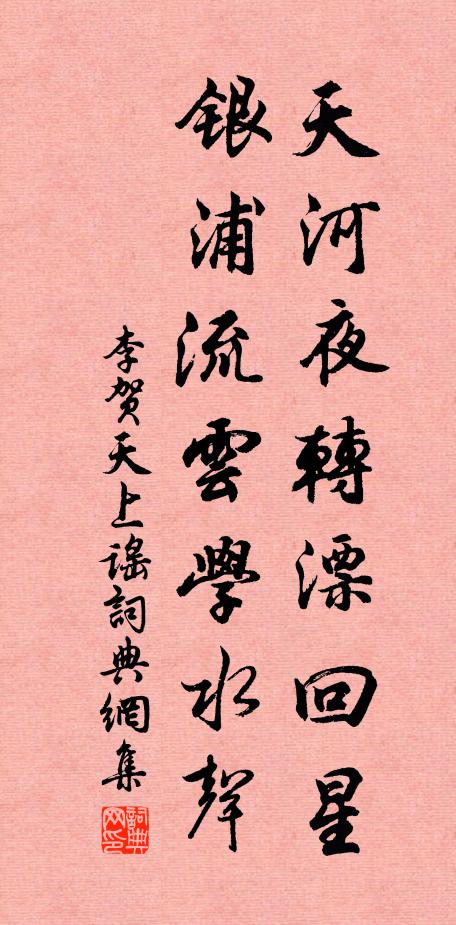 天河夜轉漂回星
銀浦流雲學水聲
李賀天上謠詞典網集
詞典网印